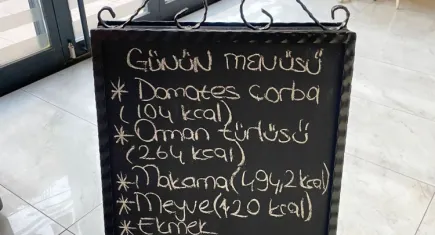 Günün menüsü
* Domates Çorba
(104 kcal)
* Orman türlüsü
(264 kcal)
* Makarna (494,2 kcal)
* Meyve (120 kcal)
* Ekmek